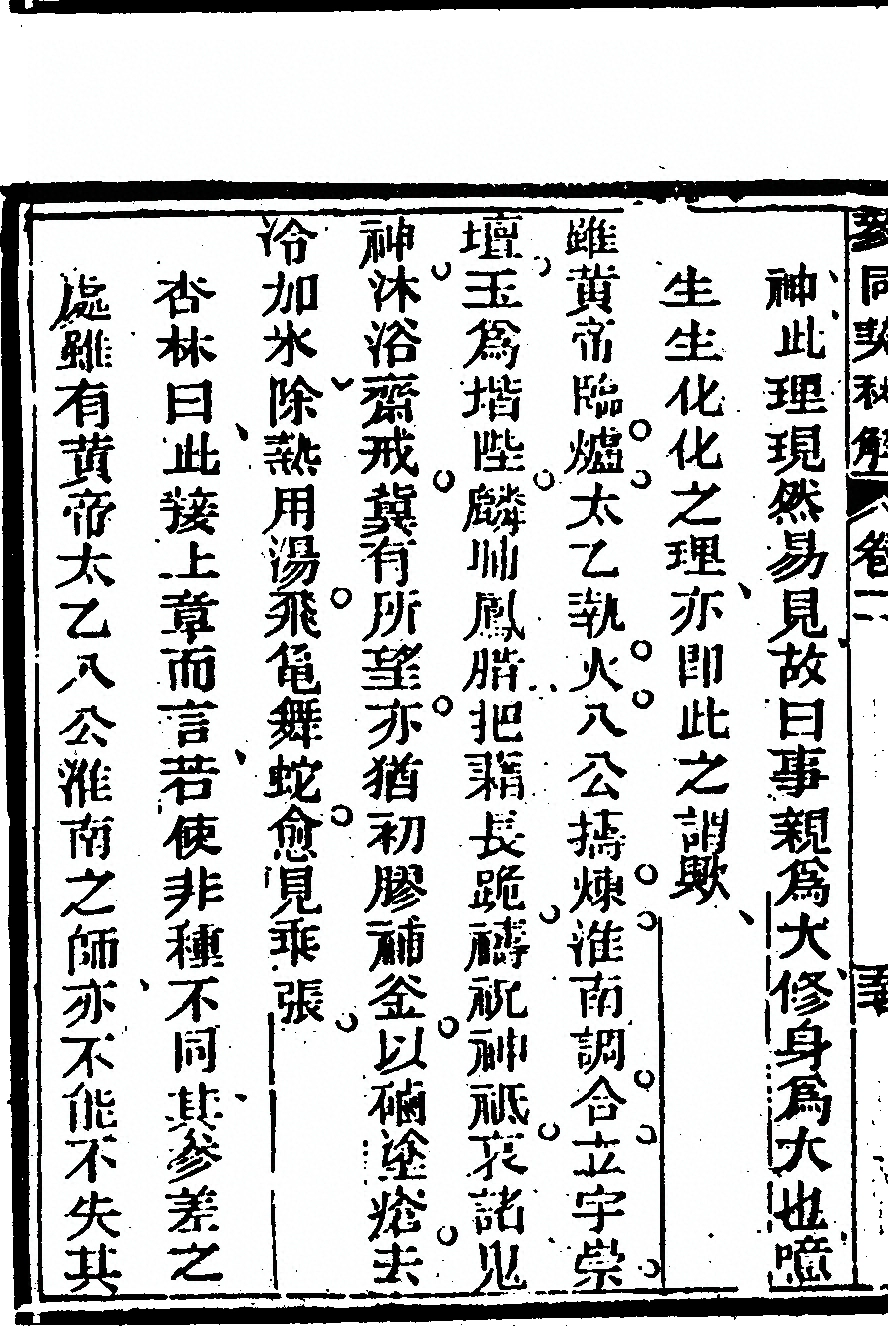 參同契秘解 卷二
神此理現然易見故曰事親爲大修身爲大也噫
生生化化之理亦即此之謂歟
雖黃帝臨爐太乙執火八公擣煉淮南調合立宇崇
壇玉爲堦陛麟脯鳳腊把籍長跪禱祝神祗哀諸鬼
神沐浴齋戒冀有所望亦猶初膠補釜以硇塗瘡去
冷加氷除熱用湯飛龜舞蛇愈見乖張
杏林曰此接上章而言若使非種不同其參差之
處雖有黃帝太乙八公淮南之師亦不能不失其